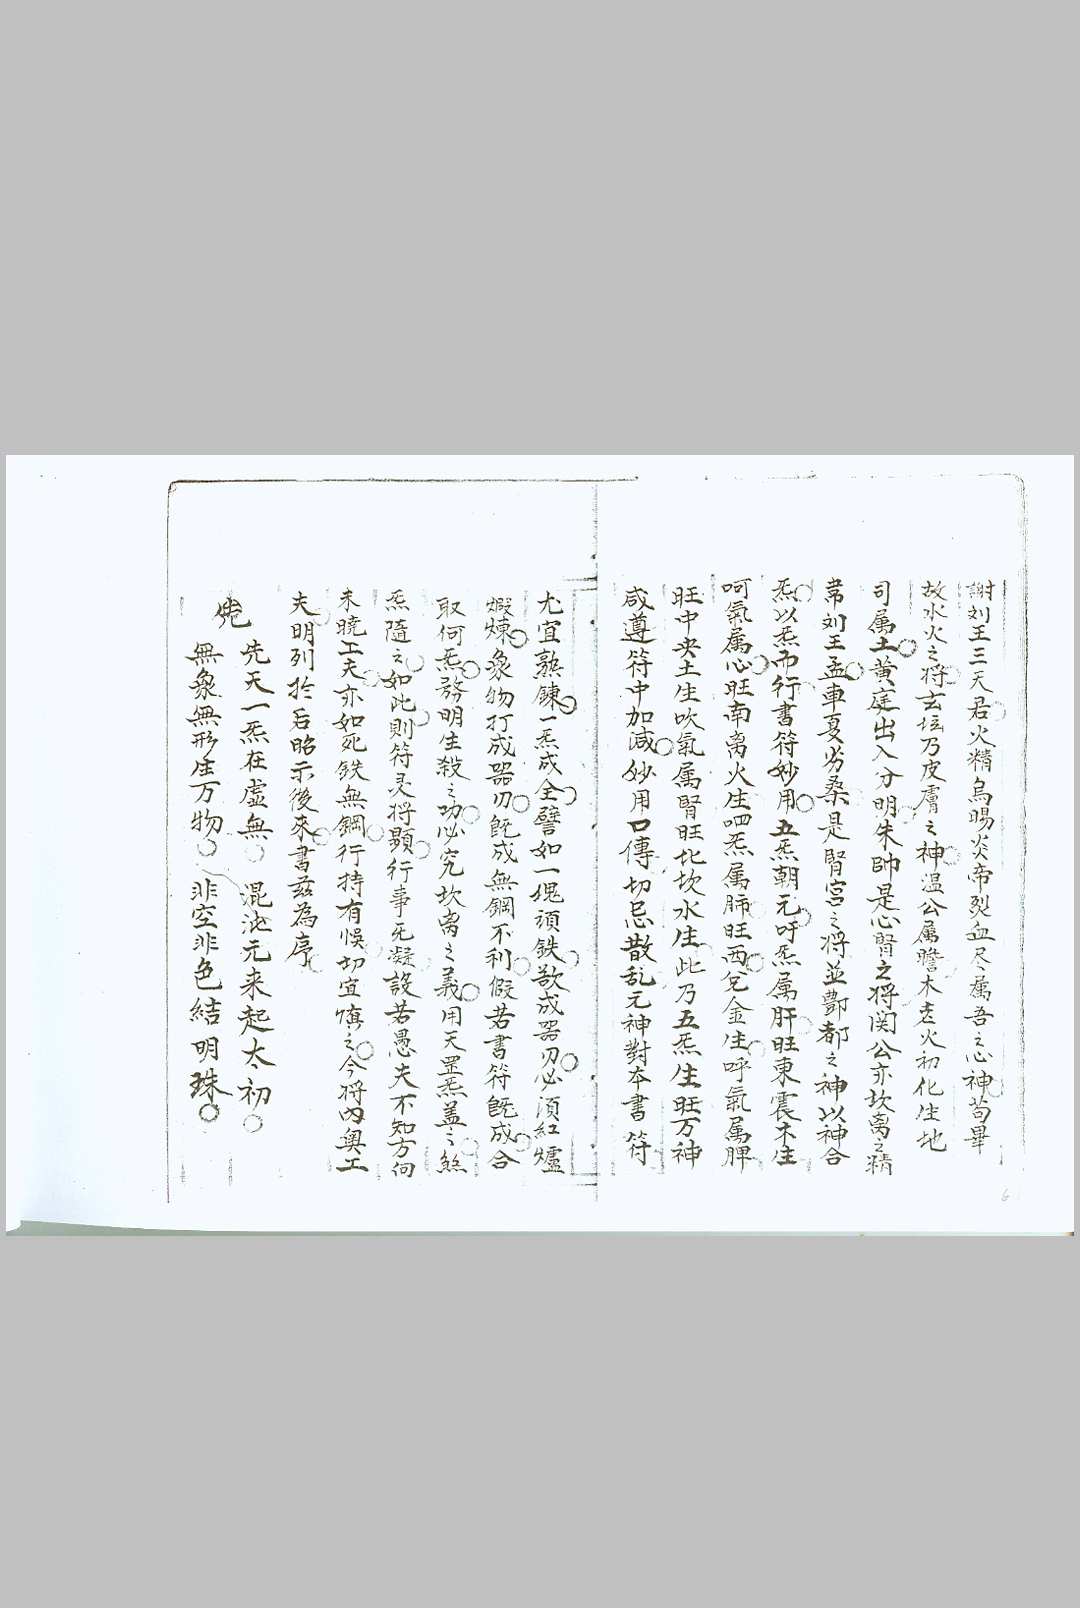 謝刘王三天君火精烏暘炎帝烈血尽属吾之心神苟畢
故水火之将玄坛乃皮膚之神温公属膽木丟火初化生地
司属土黄庭出入分明朱帥是心腎之将関公亦坎离之精
常刘王孟車夏劣桑是腎宮之将並酆都之神以神合
炁以炁而行書符妙用五炁朝元吁炁属肝旺東震木生
呵氣属心旺南离火生呬炁属肺旺西兌金生呼氣属脾
旺中央土生吹氣属腎旺北坎水生此乃五炁生旺万神
咸遵符中加減妙用口傳切忌散乱元神對本書符
尤宜熟錬一炁成全譬如一塊頑鉄欲成器刃必須紅爐
煅煉象物打成器刃旣成無鋼不利假若書符旣成合
取何炁務明生殺之功必究坎离之義用天罡炁盖之煞
炁隨之如此則符灵将顕行事无凝設若愚夫不知方向
未曉工夫亦如死鉄無鋼行持有悞切宜慎之今将内奥工
夫明列於后昭示後來書茲為序
先天一炁在虛無 混沌元来起太初
無象無形生万物 非空非色結明珠